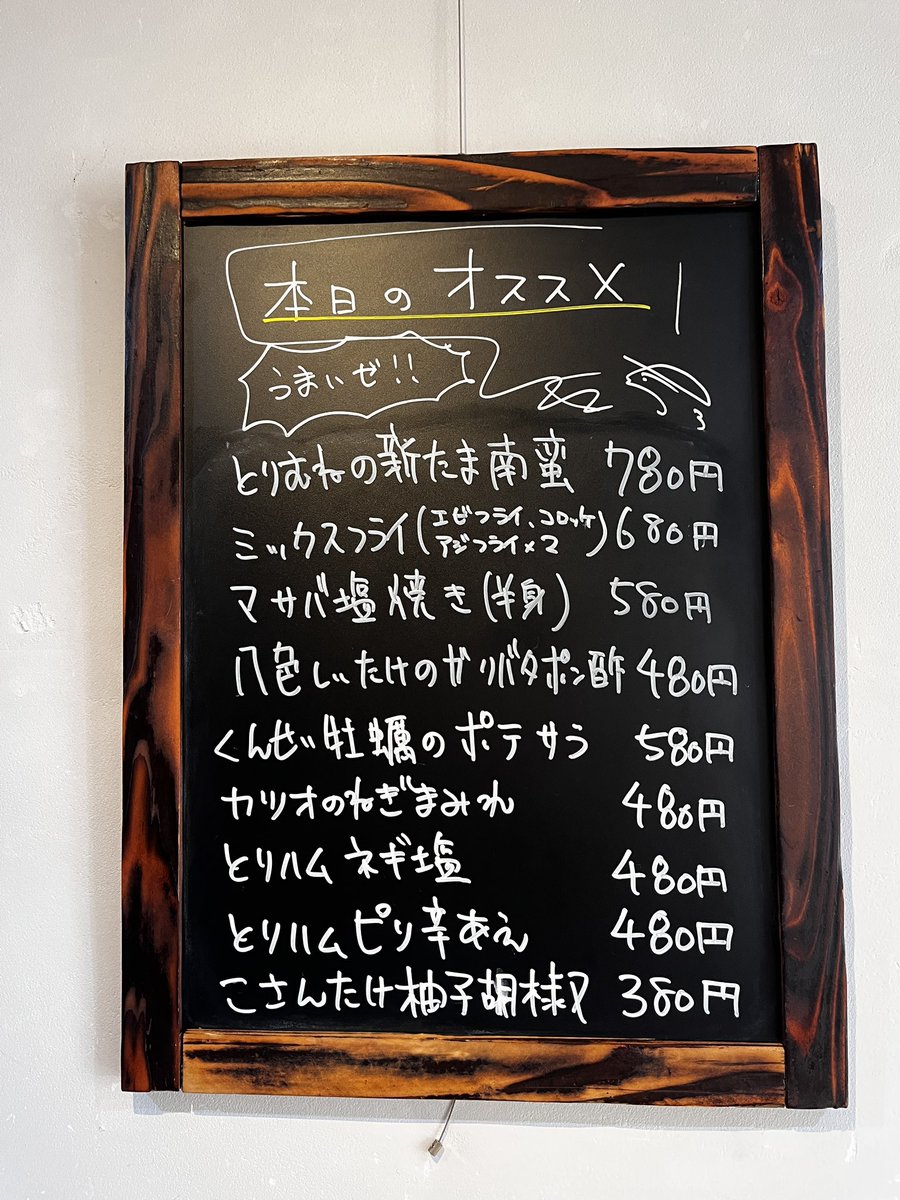 本日のオススメ
うまいぜ!!
とりむねの新たま南蛮 780円
ミックスフライ(エビフライ、コロッケ アジフライ×2) 680円
マサバ塩焼き(半身) 580円
八色しいたけのガリバタポン酢 480円
くんせい牡蠣のポテサラ 580円
カツオのねぎまみれ 480円
とりハムネギ塩 480円
とりハムピリ辛あえ 480円
こさんたけ柚子胡椒 380円